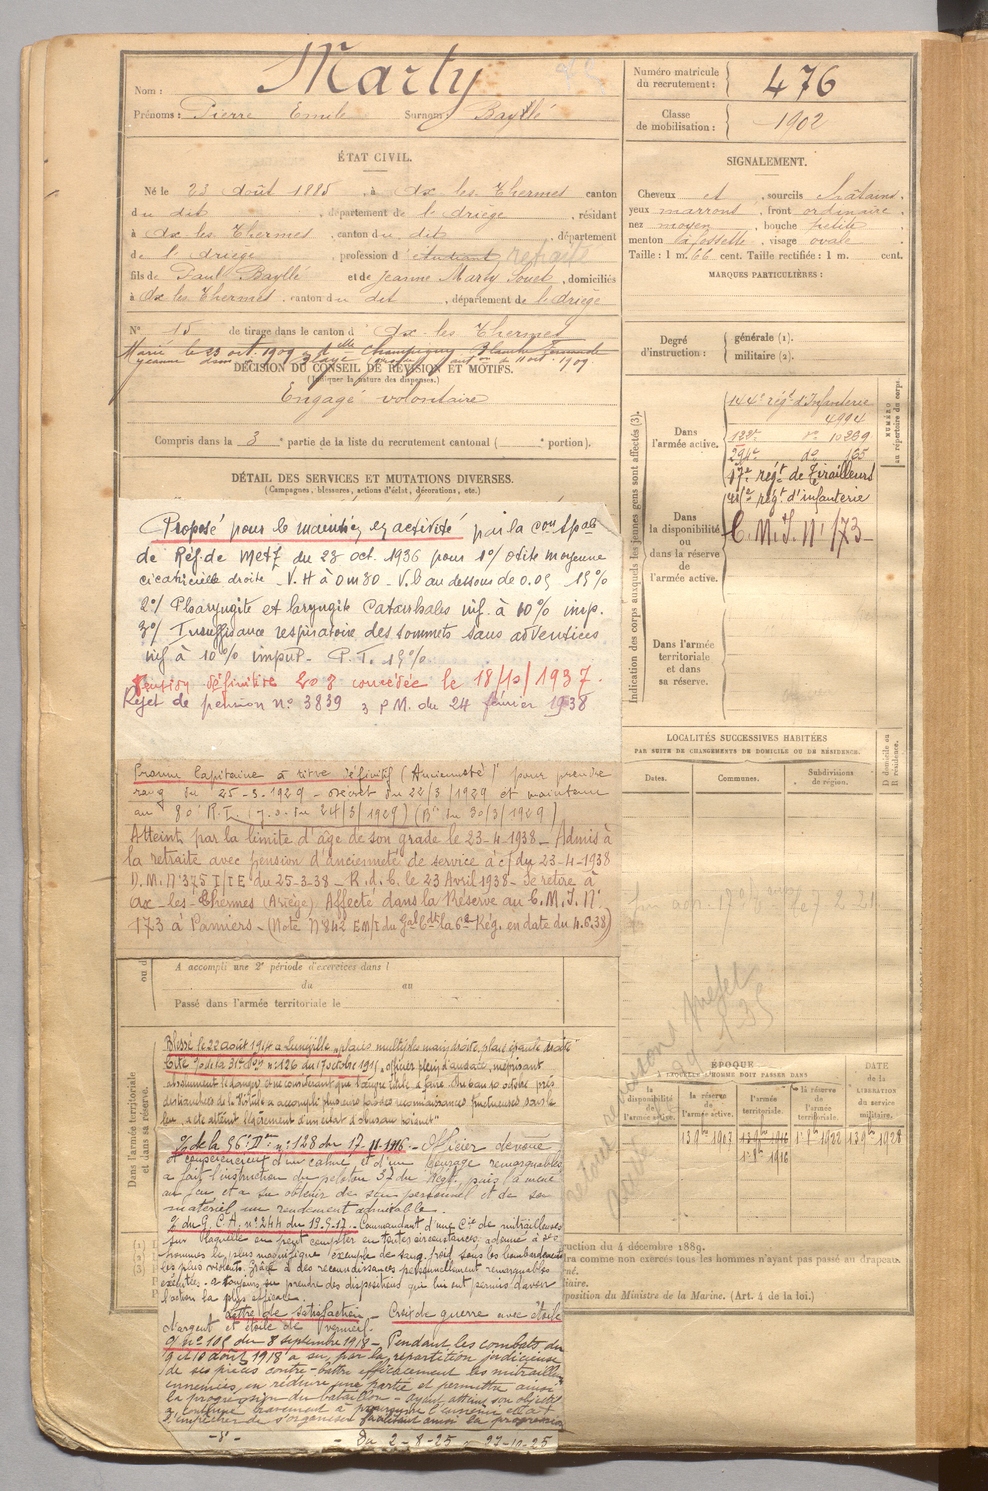 Nom : Marty
Prénoms : Pierre Emile Surnom : Bayllé
Numéro matricule du recrutement : 476
Classe de mobilisation : 1902
ÉTAT CIVIL.
Né le 23 Août 1885, à Ax les Thermes canton
du dit, département de l'Ariège, résidant
à Ax les Thermes, canton du dit, département
de l'Ariège, profession d'étudiant retraité
fils de Paul Bayllé et de Jeanne Marty, domiciliés
à Ax les Thermes, canton du dit, département de l'Ariège
N° 15 de tirage dans le canton d'Ax-les-Thermes
Marié le 23 oct. 1909 à Delle Champigny Blanche
DÉCISION DU CONSEIL DE RÉVISION ET MOTIFS.
(Indiquer la nature des dispenses.)
Engagé volontaire
Compris dans la 3e partie de la liste du recrutement cantonal ( e portion).
DÉTAIL DES SERVICES ET MUTATIONS DIVERSES.
(Campagnes, blessures, actions d'éclat, décorations, etc.)
Proposé pour le maintien en activité par la con Spale
de Réf. de Metz du 23 oct. 1936 pour 1°/ otite moyenne
cicatricielle droite - V.H à 0m80 - V.b au dessous de 0.05 15%
2°/ Pharyngite et laryngite catarrhales inf. à 10% imp.
3°/ Insuffisance respiratoire des sommets sans adventices
inf à 10% imput - P.T. 15%
Pension définitive 208 concédée le 18/10/1937.
Rejet de pension n° 3839 3 P M. du 24 février 1938
Promu Capitaine à titre définitif (Ancienneté) pour prendre
rang du 25-3-1929 - décret du 22/3/1929 et maintenu
au 80e R.I. (J.O. du 24/3/1929) (Bin du 30/3/1929)
Atteint par la limite d'âge de son grade le 23-4-1938 - Admis à
la retraite avec pension d'ancienneté de service à c/ du 23-4-1938
D.M. N° 375 I/IE du 25-3-38 - R.d.C. le 23 Avril 1938 - Se retire à
Ax-les-Thermes (Ariège) Affecté dans la Réserve au C.M.I. N°
173 à Pamiers - (Note N° 842 EM/I du Gal Cdt la 6e Rég. en date du 4.6.38)
A accompli une 2e période d'exercices dans l
du au
Passé dans l'armée territoriale le
Dans l'armée territoriale et dans sa réserve.
Blessé le 22 août 1914 à Lunéville, plaies multiples main droite, plaie épaule droite
Cité n° 126 du 17 octobre 1915, officier plein d'audace, méprisant
absolument le danger, et ne considérant que l'ouvrage utile à faire.
des tranchées a accompli plusieurs fois des reconnaissances périlleuses sous le
feu, a été atteint légèrement d'un éclat d'obus au poignet
O/ de la 56e Don n° 128 du 17.11.1916 - Officier dévoué
et consciencieux d'un calme et d'un courage remarquables
a fait l'instruction du peloton 37 du Régt., puis l'a mené
au feu et a su obtenir de son personnel et de son
matériel un rendement admirable.
O/ du G.C.A. n° 244 du 19.5.17. Commandant d'une Cie de mitrailleuses
sur laquelle on peut compter en toutes circonstances, a donné à ses
hommes le plus magnifique exemple de sang froid sous les bombardements
les plus violents. Grâce à des reconnaissances personnellement remarquables
exécutées, a toujours su prendre des dispositions qui lui ont permis d'avoir
l'action la plus efficace.
Lettre de satisfaction - Croix de guerre avec étoile
d'argent et étoile de vermeil.
O/ n° 105 du 8 septembre 1918 - Pendant les combats du
9 et 10 août 1918 a su, par la répartition judicieuse
de ses pièces contre-battre efficacement les mitrailleuses
ennemies, en réduire une partie et permettre ainsi
la progression du bataillon - ayant atteint son objectif
a continué bravement à poursuivre l'ennemi et l'a
empêcher de s'organiser facilitant ainsi la progression
Du 2-8-25 27-10-25
SIGNALEMENT.
Cheveux et, sourcils châtains,
yeux marrons, front ordinaire,
nez moyen, bouche petite
menton à fossette, visage ovale
Taille : 1 m. 66 cent. Taille rectifiée : 1 m. cent.
MARQUES PARTICULIÈRES :
Degré d'instruction : générale (1).
militaire (2).
Indication des corps auxquels les jeunes gens sont affectés (3).
NUMÉRO au répertoire du corps.
Dans l'armée active.
144e régt d'Infanterie
4994
122e do 10339
294e do 165
17e régt de Tirailleurs
régt d'infanterie
Dans la disponibilité ou dans la réserve de l'armée active.
C.M.I. N° 173
Dans l'armée territoriale et dans sa réserve.
LOCALITÉS SUCCESSIVES HABITÉES
PAR SUITE DE CHANGEMENTS DE DOMICILE OU DE RÉSIDENCE.
Dates. Communes. Subdivisions de région. D domicile ou R résidence.
ÉPOQUE
À LAQUELLE L'HOMME DOIT PASSER DANS
la disponibilité de l'armée active. la réserve de l'armée active. l'armée territoriale. la réserve de l'armée territoriale.
DATE de la LIBÉRATION du service militaire.
13 9bre 1907 13 9bre 1916 1er 8bre 1922 13 9bre 1928
1er 8bre 1916
ruction du 4 décembre 1889.
ira comme non exercés tous les hommes n'ayant pas passé au drapeau
position du Ministre de la Marine. (Art. 4 de la loi.)